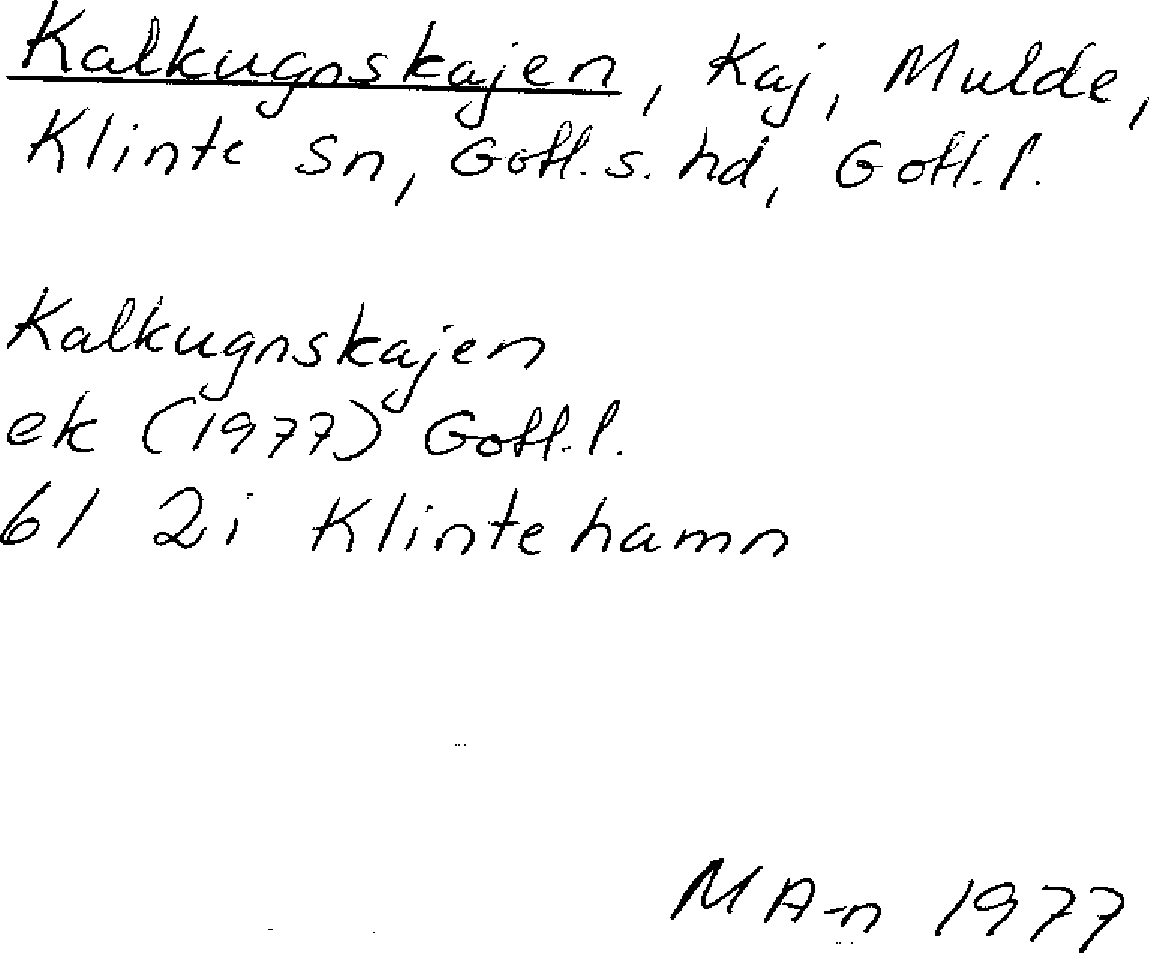 Kalkugnskajen, Kaj, Mulde,
Klinte sn, Gotl. s. hd, Gotl. l.
Kalkugnskajen
ek (1977) Gotl. l.
61 2i Klintehamn
MA-n 1977